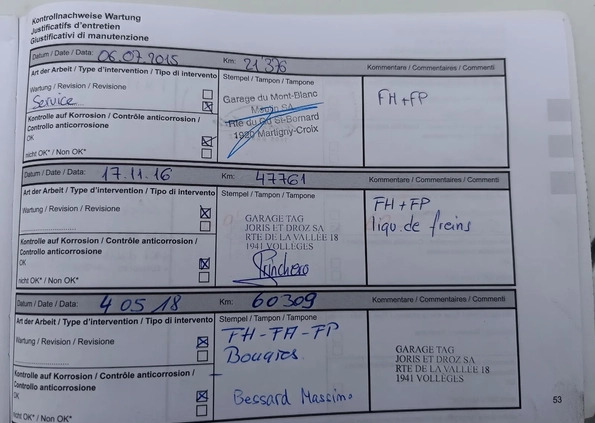 Kontrollnachweise Wartung
Justificatifs d'entretien
Giustificativi di manutenzione
Datum / Date / Data: 06.07.2015 Km: 21'376 Kommentare / Commentaires / Commenti
Art der Arbeit / Type d'intervention / Tipo di intervento Stempel / Tampon / Tampone
Wartung / Revision / Revisione
Service
Garage du Mont-Blanc
Rte du Gd St-Bernard
1920 Martigny-Croix
FH+FP
Kontrolle auf Korrosion / Contrôle anticorrosion /
Controllo anticorrosione
OK
nicht OK* / Non OK*
Datum / Date / Data: 17.11.16 Km: 47761 Kommentare / Commentaires / Commenti
Art der Arbeit / Type d'intervention / Tipo di intervento Stempel / Tampon / Tampone
Wartung / Revision / Revisione
GARAGE TAG
JORIS ET DROZ SA
RTE DE LA VALLÉE 18
1941 VOLLÈGES
FH+FP
liqu. de freins
Kontrolle auf Korrosion / Contrôle anticorrosion /
Controllo anticorrosione
OK
nicht OK* / Non OK*
Datum / Date / Data: 4 05 18 Km: 60309 Kommentare / Commentaires / Commenti
Art der Arbeit / Type d'intervention / Tipo di intervento Stempel / Tampon / Tampone
Wartung / Revision / Revisione
FH-FA-FP
Bougies
GARAGE TAG
JORIS ET DROZ SA
RTE DE LA VALLÉE 18
1941 VOLLÈGES
Kontrolle auf Korrosion / Contrôle anticorrosion /
Controllo anticorrosione
OK
Bessard Massimo
nicht OK* / Non OK*
53